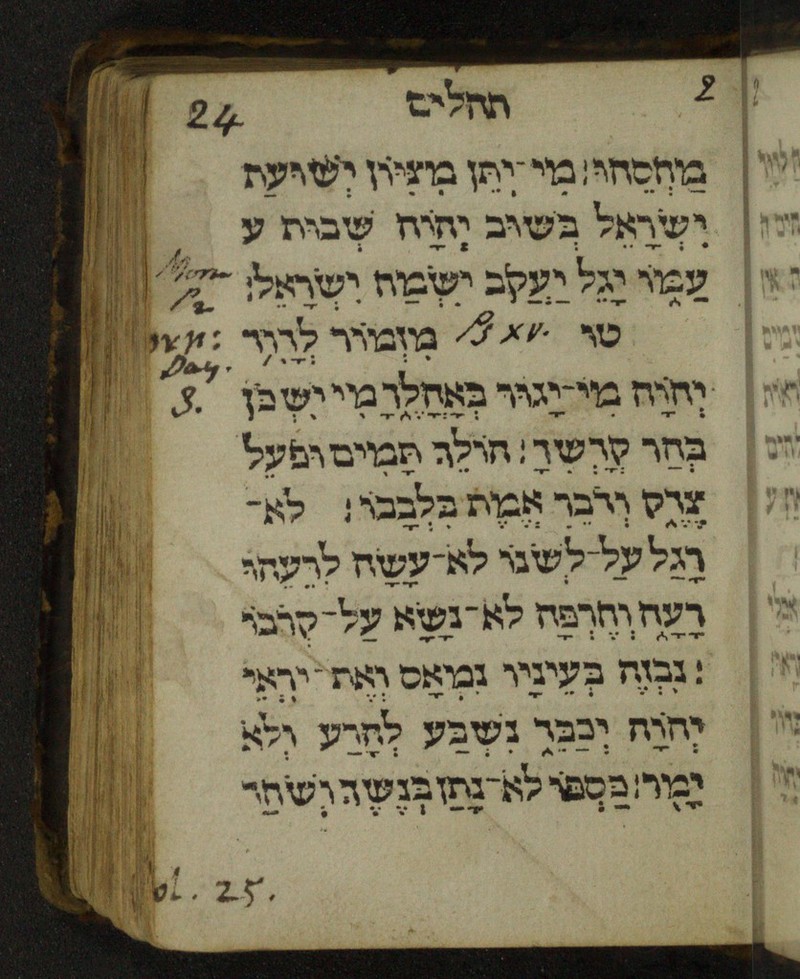 24 תהלים 2
מַחְסֵהוּ׃ מִי־יִתֵּן מִצִּיּוֹן יְשׁוּעַת
יִשְׂרָאֵל בְּשׁוּב יְהוָֹה שְׁבוּת ע
Mor עַמּוֹ יָגֵל יַעֲקֹב יִשְׂמַח יִשְׂרָאֵל׃
טו ß XV. מִזְמוֹר לְדָוִד
Day. יְהוָֹה מִי־יָגוּר בְּאָהֳלֶךָ מִי יִשְׁכֹּן
3. בְּהַר קָדְשֶׁךָ׃ הוֹלֵךְ תָּמִים וּפֹעֵל
צֶדֶק וְדֹבֵר אֱמֶת בִּלְבָבוֹ׃ לֹא־
רָגַל עַל־לְשֹׁנוֹ לֹא־עָשָׂה לְרֵעֵהוּ
רָעָה וְחֶרְפָּה לֹא־נָשָׂא עַל־קְרֹבוֹ
׃ נִבְזֶה בְּעֵינָיו נִמְאָס וְאֶת־יִרְאֵי
יְהוָֹה יְכַבֵּד נִשְׁבַּע לְהָרַע וְלֹא
יָמִר׃ כַּסְפּוֹ לֹא־נָתַן בְּנֶשֶׁךְ וְשֹׁחַד
ol. 25.